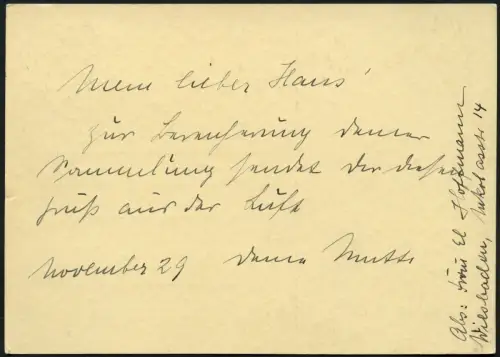 Mein lieber Hans!
zur Bereicherung deiner
Sammlung sendet dir diesen
Gruß aus der Luft
November 29 deine Mutti
Abs: Frau El Hoffmann
Wiesbaden, Nikolasstr 14